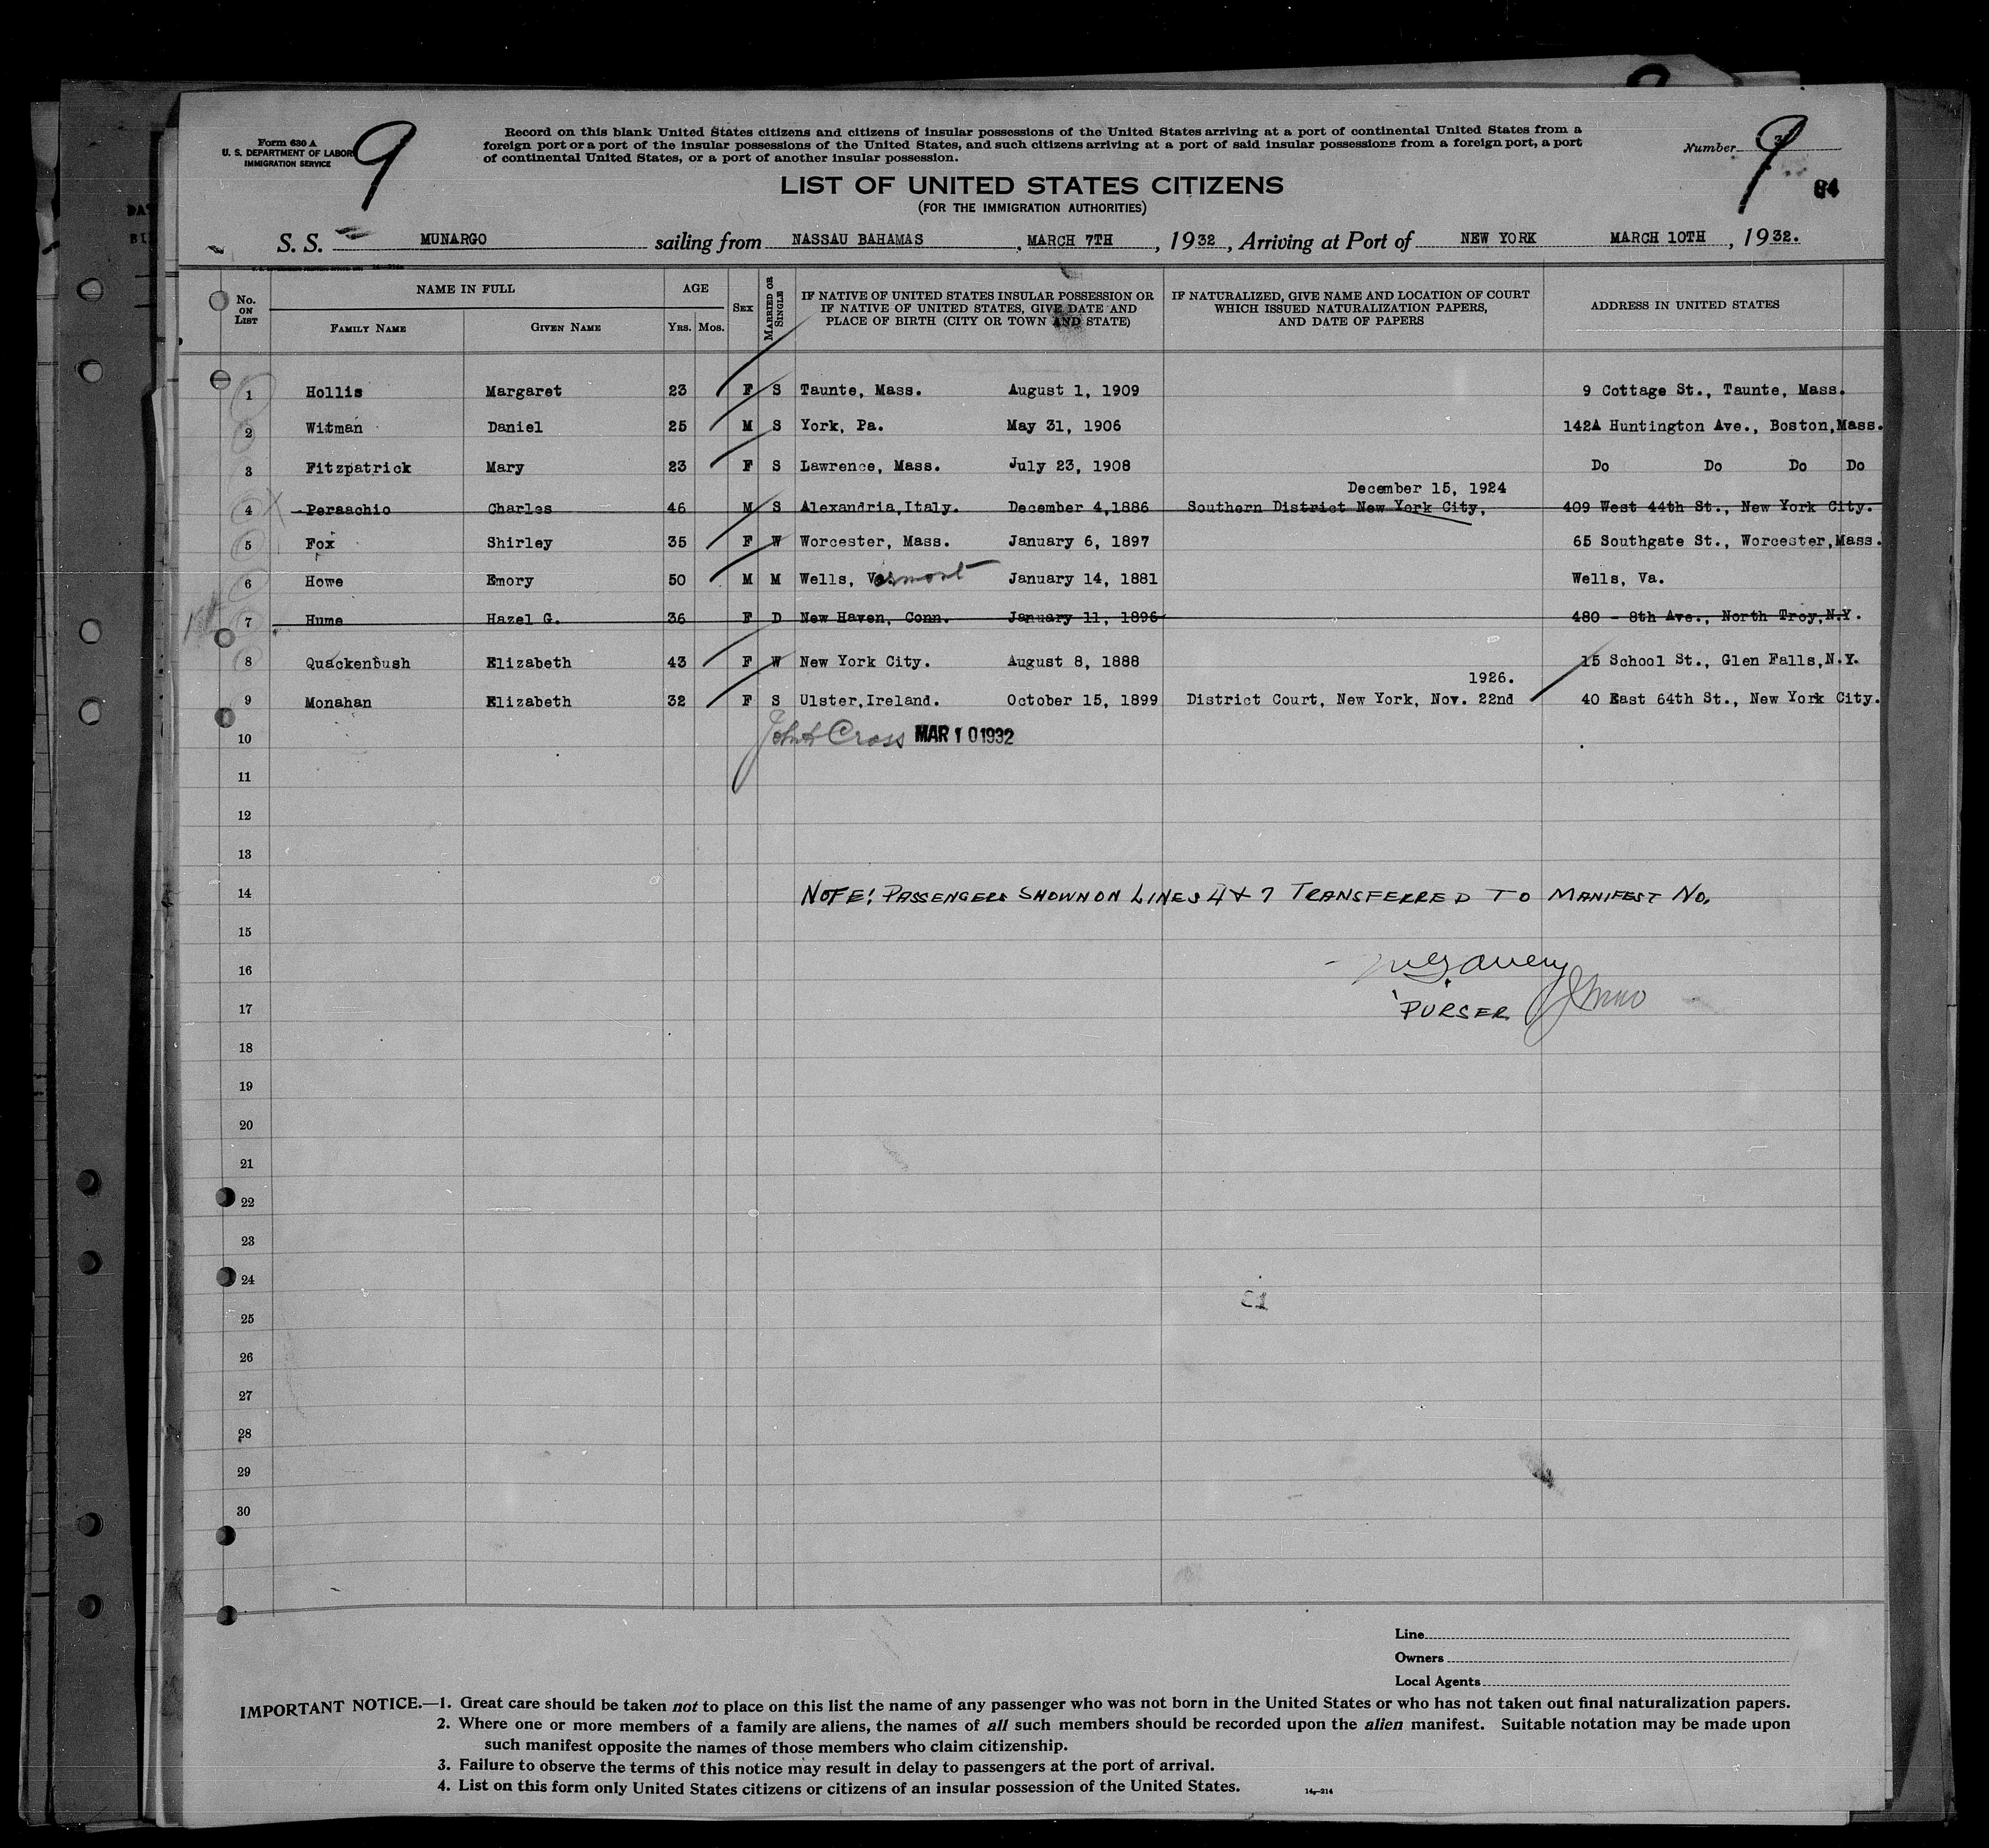 Form 630 A
U. S. DEPARTMENT OF LABOR
IMMIGRATION SERVICE
9
Record on this blank United States citizens and citizens of insular possessions of the United States arriving at a port of continental United States from a
foreign port or a port of the insular possessions of the United States, and such citizens arriving at a port of said insular possessions from a foreign port, a port
of continental United States, or a port of another insular possession.
Number 9
3
84
LIST OF UNITED STATES CITIZENS
(FOR THE IMMIGRATION AUTHORITIES)
S. S. MUNARGO sailing from NASSAU BAHAMAS, MARCH 7TH, 1932, Arriving at Port of NEW YORK MARCH 10TH, 1932.
No. ON LIST
NAME IN FULL
FAMILY NAME GIVEN NAME
AGE
YRS. MOS.
SEX
MARRIED OR SINGLE
IF NATIVE OF UNITED STATES INSULAR POSSESSION OR
IF NATIVE OF UNITED STATES, GIVE DATE AND
PLACE OF BIRTH (CITY OR TOWN AND STATE)
IF NATURALIZED, GIVE NAME AND LOCATION OF COURT
WHICH ISSUED NATURALIZATION PAPERS,
AND DATE OF PAPERS
ADDRESS IN UNITED STATES
1 Hollis Margaret 23 F S Taunte, Mass. August 1, 1909 9 Cottage St., Taunte, Mass.
2 Witman Daniel 25 M S York, Pa. May 31, 1906 142A Huntington Ave., Boston,Mass.
3 Fitzpatrick Mary 23 F S Lawrence, Mass. July 23, 1908 Do Do Do Do
December 15, 1924
4 Peraachio Charles 46 M S Alexandria,Italy. December 4,1886 Southern District New York City, 409 West 44th St., New York City.
5 Fox Shirley 35 F W Worcester, Mass. January 6, 1897 65 Southgate St., Worcester,Mass.
6 Howe Emory 50 M M Wells, Vermont January 14, 1881 Wells, Va.
7 Hume Hazel G. 36 F D New Haven, Conn. January 11, 1896 480 - 8th Ave., North Troy,N.Y.
8 Quackenbush Elizabeth 43 F W New York City. August 8, 1888 15 School St., Glen Falls,N.Y.
1926.
9 Monahan Elizabeth 32 F S Ulster,Ireland. October 15, 1899 District Court, New York, Nov. 22nd 40 East 64th St., New York City.
10 Cross MAR 10 1932
11
12
13
14 NOTE: PASSENGERS SHOWN ON LINES 4 & 7 TRANSFERRED TO MANIFEST NO.
15
16
17 PURSER
18
19
20
21
22
23
24
25
26
27
28
29
30
Line
Owners
Local Agents
IMPORTANT NOTICE.—1. Great care should be taken not to place on this list the name of any passenger who was not born in the United States or who has not taken out final naturalization papers.
2. Where one or more members of a family are aliens, the names of all such members should be recorded upon the alien manifest. Suitable notation may be made upon
such manifest opposite the names of those members who claim citizenship.
3. Failure to observe the terms of this notice may result in delay to passengers at the port of arrival.
4. List on this form only United States citizens or citizens of an insular possession of the United States.
14—214